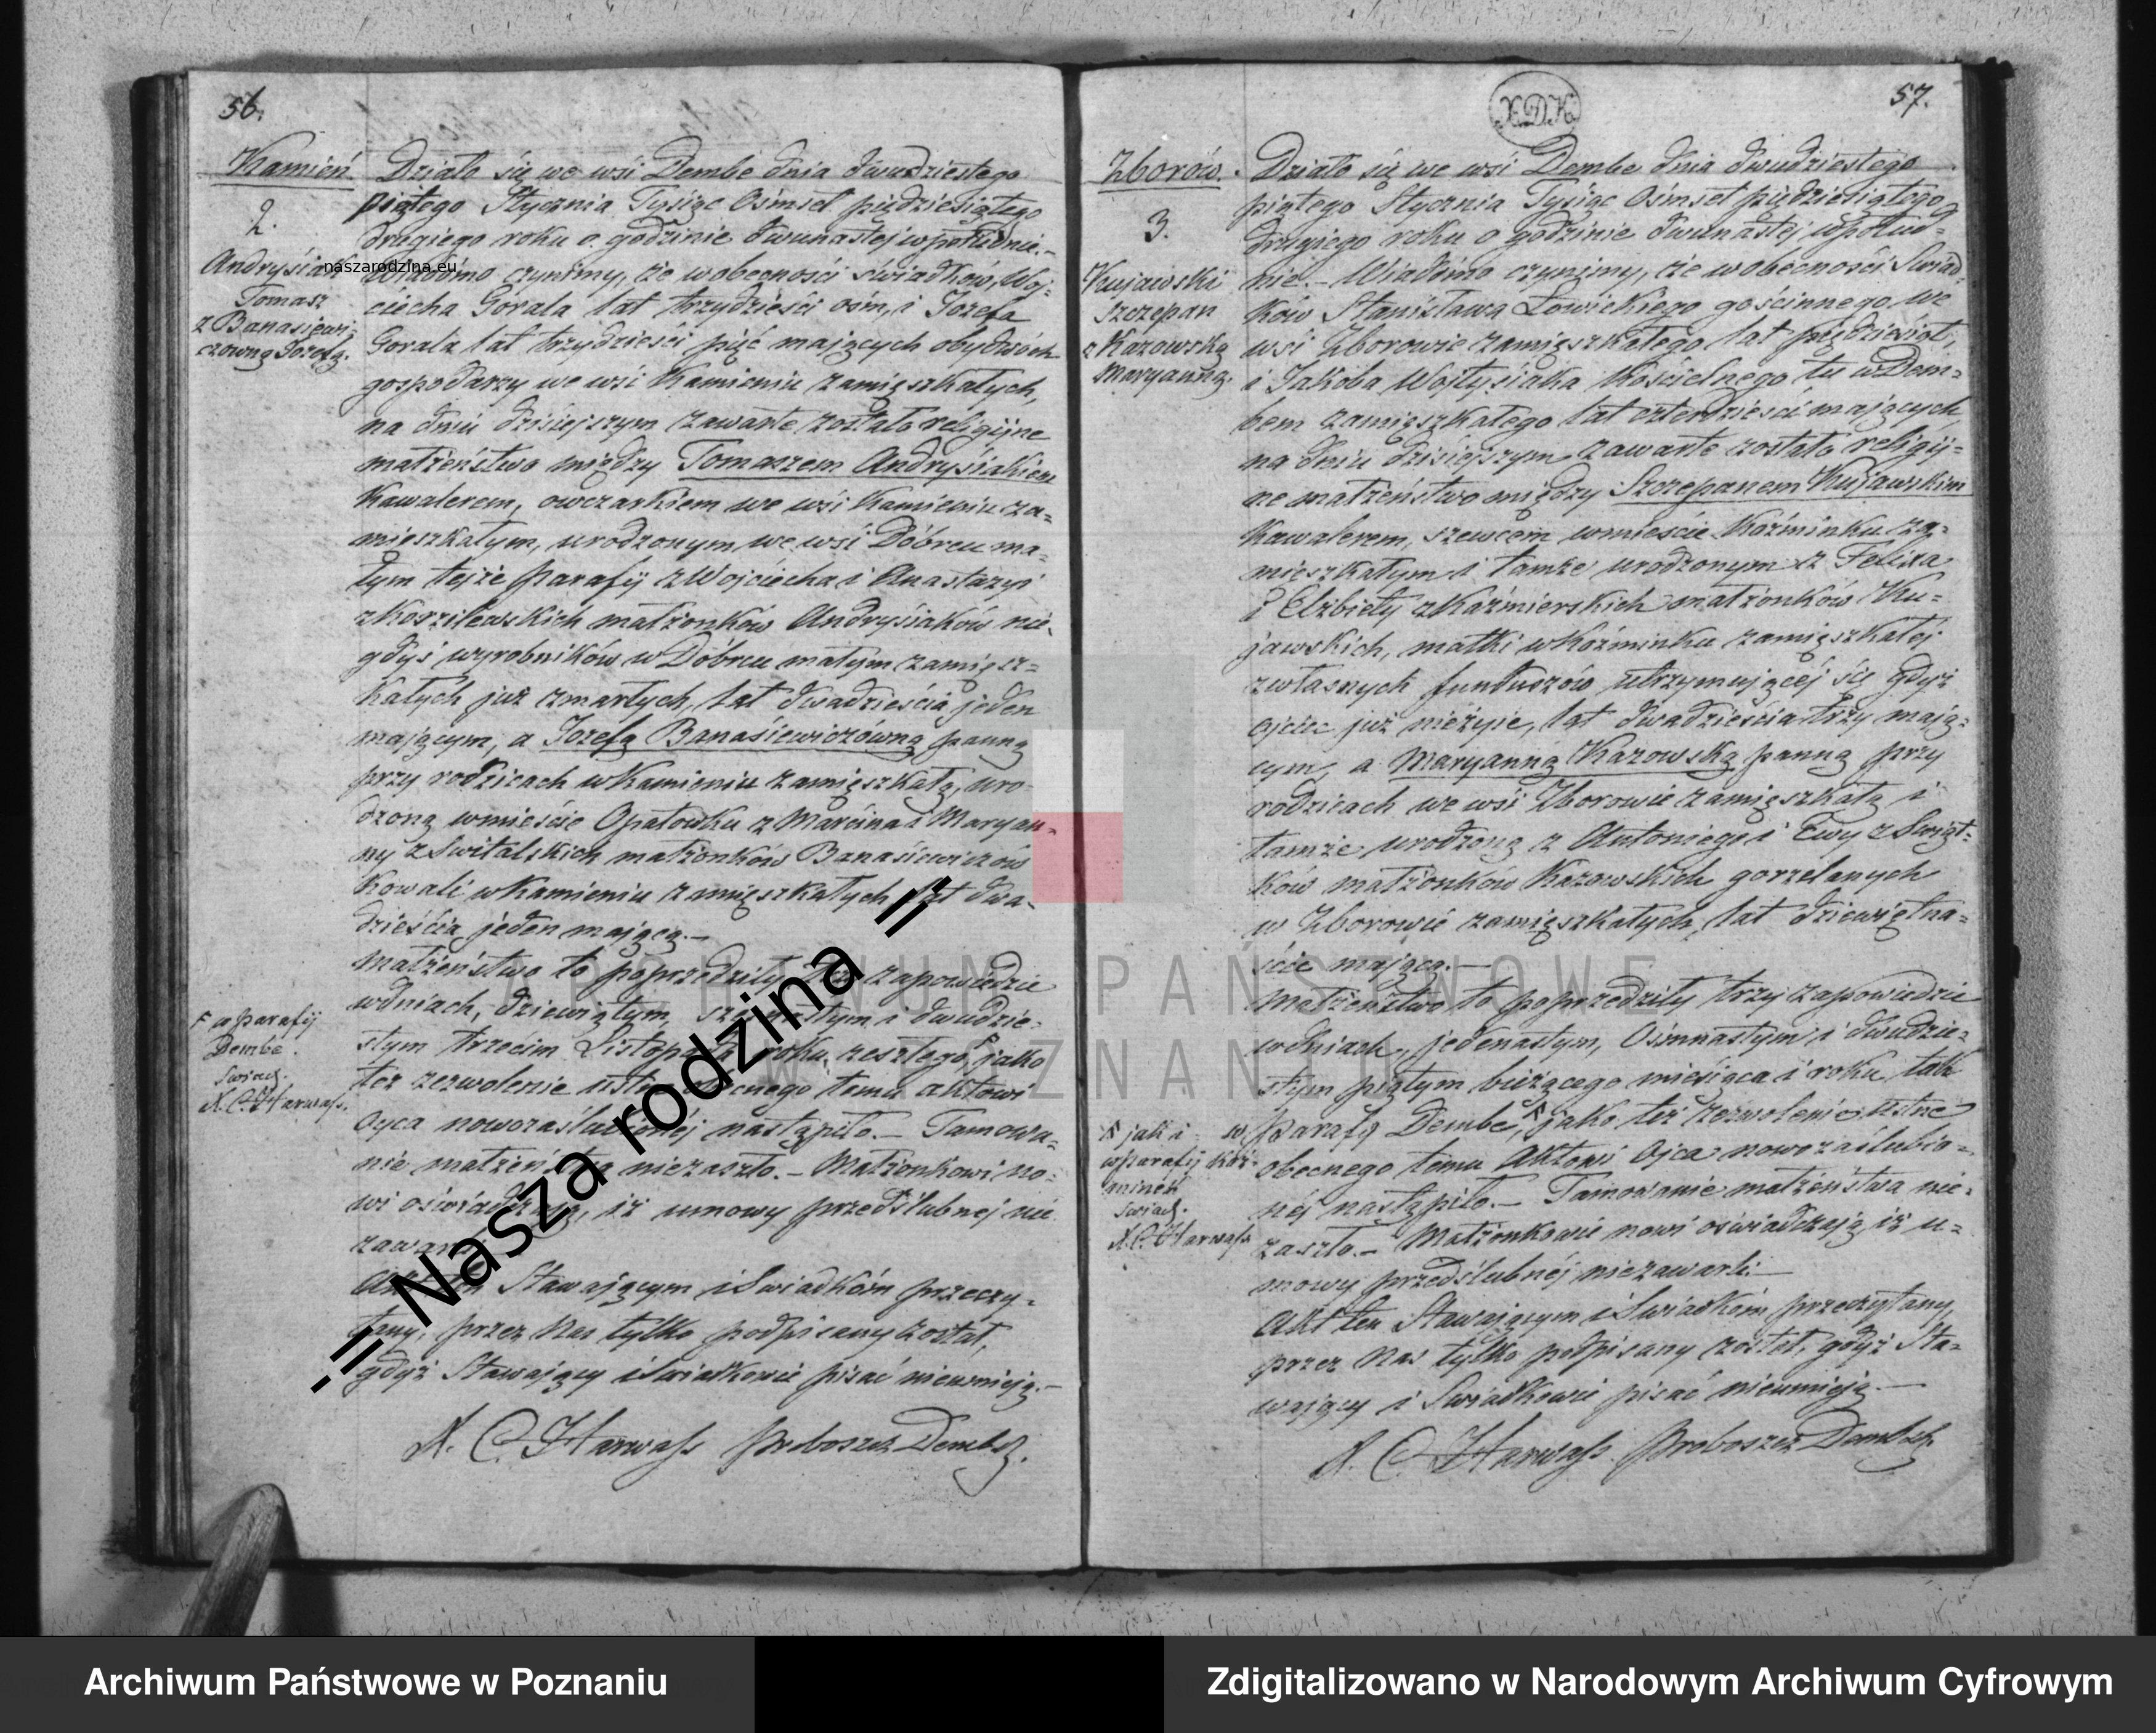 56.
Kamień
2.
Andrysiak
Tomasz
z Banasiewi-
czowną Józefą.
Działo się we wsi Dembe dnia dwudziestego
piątego Stycznia Tysiąc Ośmset pięćdziesiątego
drugiego roku o godzinie dwunastej w południe.-
Wiadomo czynimy, że w obecności świadków, Woj-
ciecha Gorala lat trzydzieści ośm, i Józefa
Gorala lat trzydzieści pięć mających obydwóch
gospodarzy we wsi Kamieniu zamięszkałych,
na dniu dzisiejszym zawarte zostało religijne
małżeństwo między Tomaszem Andrysiakiem
Kawalerem, owczarkiem we wsi Kamieniu za-
mieszkałym, urodzonym we wsi Dóbrcu ma-
łym tejże parafij z Wojciecha i Anastazyi
małżonków Andrysiaków nie-
gdyś wyrobników w Dóbrcu małym zamięsz-
kałych już zmarłych, lat dwadzieścia jeden
mającym, a Józefą Banasiewiczówną panną
przy rodzicach w Kamieniu zamięszkałą, uro-
dzoną w mieście Opatówku z Marcina i Maryan-
ny z Świtalskich małżonków Banasiewiczów
Kowali w Kamieniu zamięszkałych lat dwa-
dzieścia jeden mającą.-
Małżeństwo to poprzedziły trzy zapowiedzie
w dniach, dziewiątym, szesnastym i dwudzie-
stym trzecim Listopada roku zeszłego, jako
też zezwolenie ustne obecnego temu aktowi
Oyca nowozaślubionéj nastąpiło.- Tamowa-
nie małżeństwa niezaszło.- Małżonkowi no-
wi oświadczają, iż umowy przedślubnej nie
zawarli
Akt ten Stawającym i Świadkóm przeczy-
tany, przez Nas tylko podpisany został,
gdyż Stawający i Świadkowie pisać nieumieją.-
X. C. Harwass Proboszcz Dembsk.
w parafij
Dembe.
Świad.
X. C. Harwass.
57.
X.D.K.
Zborów.
3.
Kujawski
Szczepan
z Kazowską
Maryanną.
Działo się we wsi Dembe dnia dwudziestego
piątego Stycznia Tysiąc Ośmset pięćdziesiątego
drugiego roku o godzinie dwunastéj w połud-
nie.- Wiadomo czynimy, że w obecności Świad-
ków Stanisława Łowickiego gościnnego we
wsi Zborowie zamięszkałego lat pięćdziesiąt,
i Jakóba Wojtysiaka Kościelnego tu w Dem-
bem zamięszkałego lat czterdzieści mających,
na dniu dzisiejszym zawarte zostało religij-
ne małżeństwo między Szczepanem Kujawskim
Kawalerem, szewcem w mieście Koźminku za-
mieszkałym i tamże urodzonym z Felixa
i Elżbiety z Kaźmierskich małżonków Ku-
jawskich, matki w Koźminku zamięszkałéj
z własnych funduszów utrzymującéj się gdyż
ojciec już nieżyie, lat dwadzieścia trzy mają-
cym, a Maryanną Kazowską panną przy
rodzicach we wsi Zborowie zamięszkałą i
tamże urodzoną z Antoniego i Ewy z Świąt-
ków małżonków Kazowskich gorzelanych
w Zborowie zamięszkałych, lat dziewiętna-
ście mającą.-
Małżeństwo to poprzedziły trzy zapowiedzie
w dniach, jedenastym, Ośmnastym i dwudzie-
stym piątym bieżącego miesiąca i roku tak
w Parafij Dembe, jako też zezwolenie ustne
obecnego temu Aktowi Ojca nowozaślubio-
néj nastąpiło.- Tamowanie małżeństwa nie-
zaszło.- Małżonkowie nowi oświadczają iż u-
mowy przedślubnéj niezawarli.-
Akt ten Stawającym i Świadkóm przeczytany,
przez Nas tylko podpisany został, gdyż Sta-
wający i Świadkowie pisać nieumieją.-
X. C. Harwass Proboszcz Dembsk.
jak i
w parafij Koź-
minek
Świad.
X. C. Harwass
naszarodzina.eu
-= Nasza rodzina =
ARCHIWUM PAŃSTWOWE
W POZNANIU
Archiwum Państwowe w Poznaniu
Zdigitalizowano w Narodowym Archiwum Cyfrowym